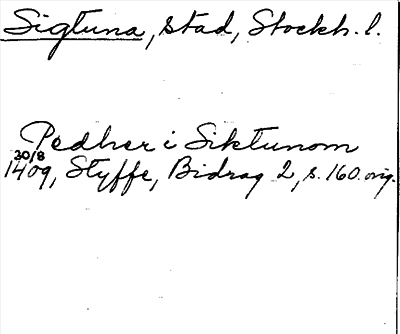 Sigtuna, stad, Stockh. l.
Pedher i Siktunom
30/8
1409, Styffe, Bidrag 2, s. 160. orig.